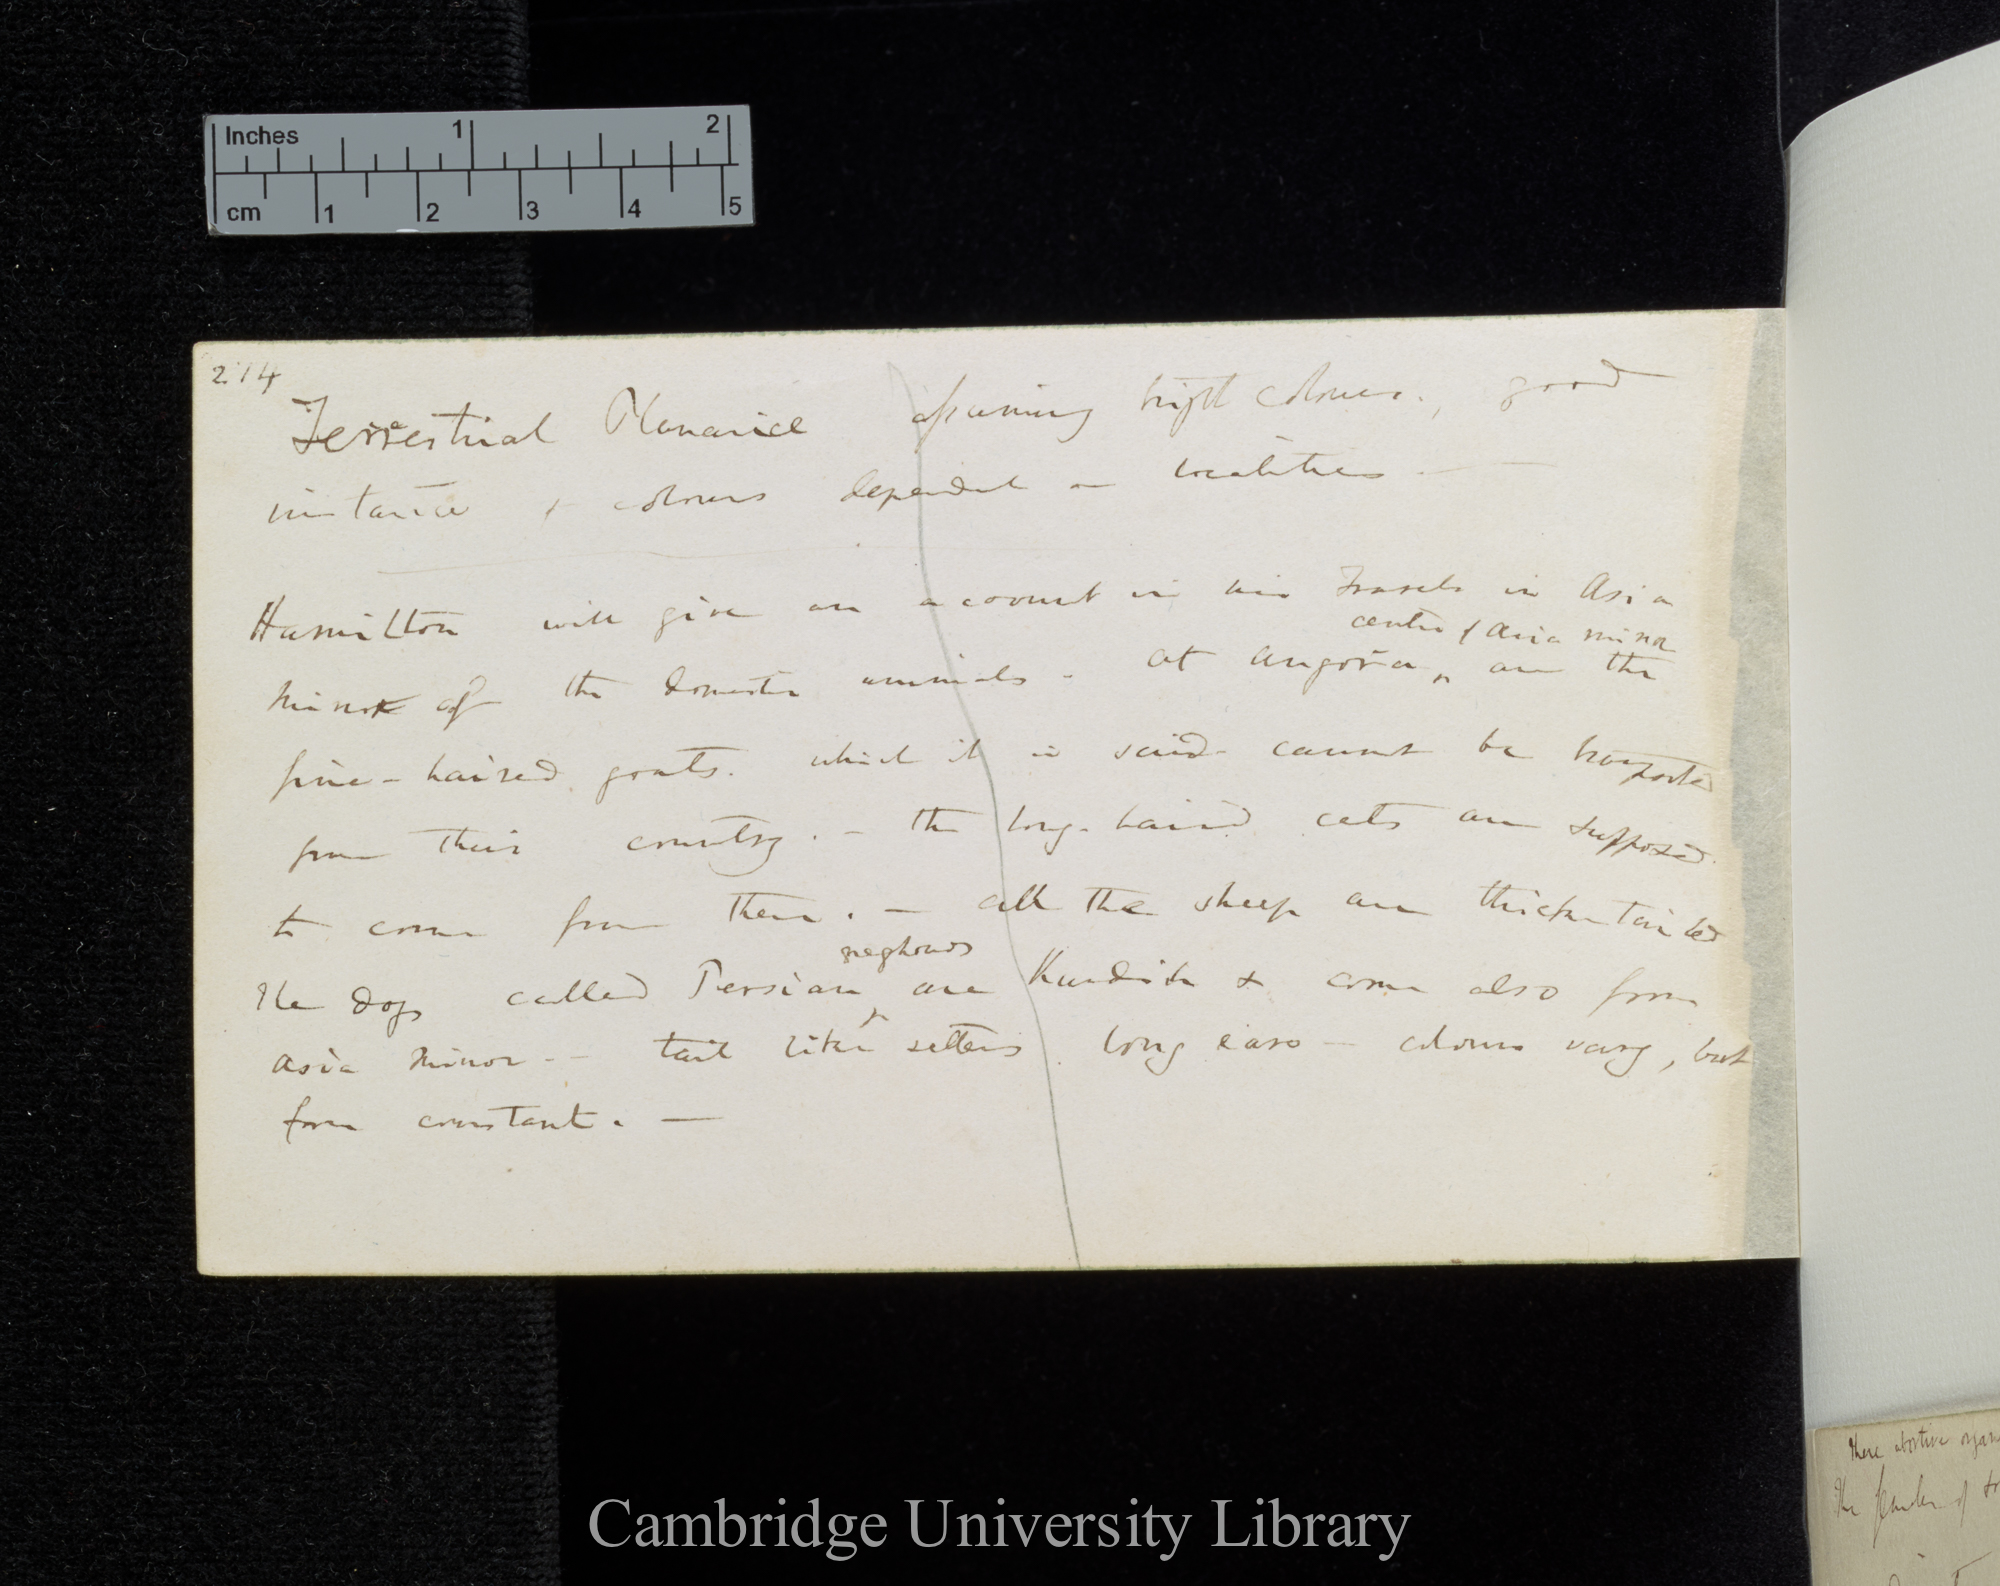 Inches 1 2
cm 1 2 3 4 5
214
Terrestrial Planariæ assuming bright colours., good
instance of colours dependent on localities —
Hamilton will give an account in his Travels in Asia
centre of Asia minor
Minor of the domestic animals. At Angora, are the
fine-haired goats. which it is said cannot be transported
from their country. — the long-haired cats are supposed
to come from there. — all the sheep are thicker tailed
greyhounds
The dogs called Persian are Kurdish & come also from
Asia Minor. — tail like setters long ears — colours vary, but
form constant. —
there abortive organ
The
of
Cambridge University Library